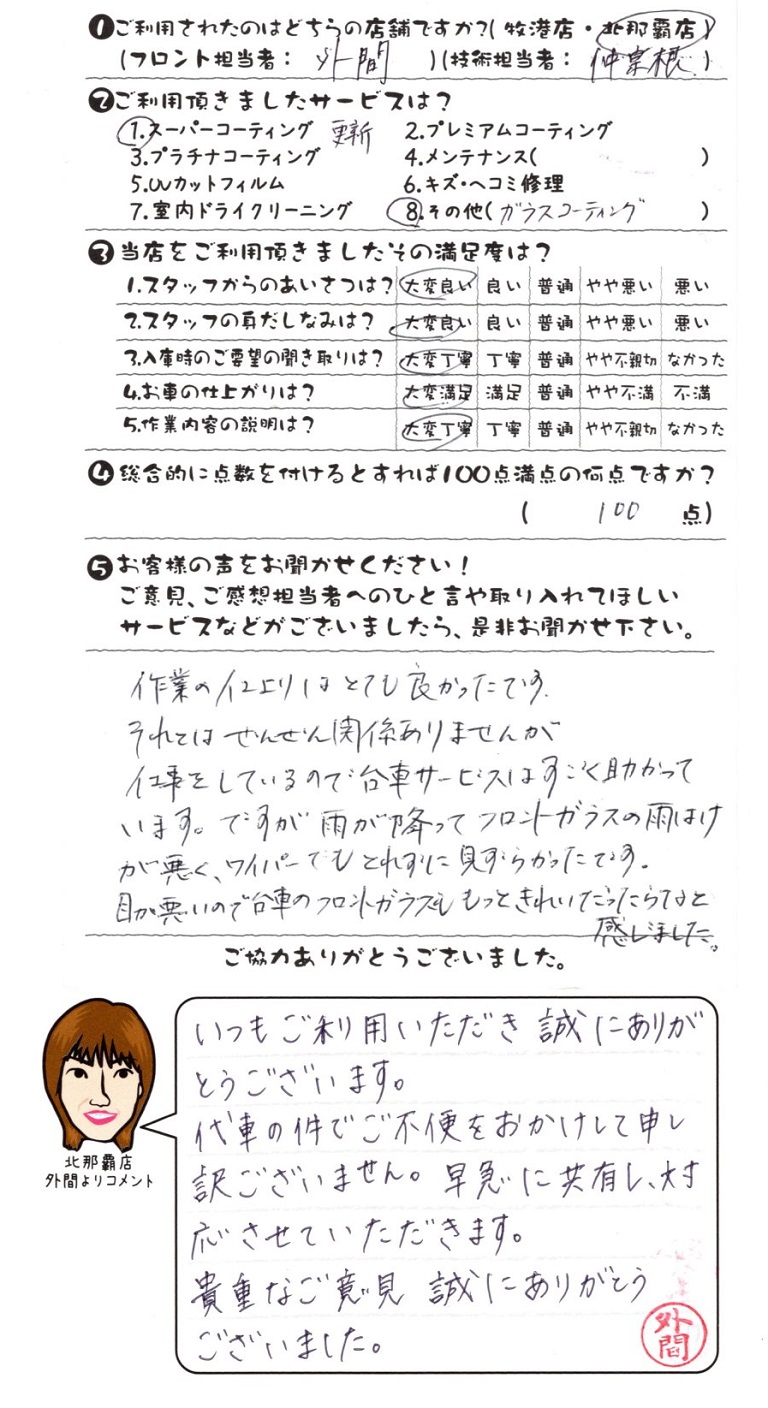 ❶ご利用されたのはどちらの店舗ですか?(牧港店・北那覇店)
(フロント担当者: 外間 )(技術担当者: 仲宗根 )
❷ご利用頂きましたサービスは?
1.スーパーコーティング 更新 2.プレミアムコーティング
3.プラチナコーティング 4.メンテナンス( )
5.UVカットフィルム 6.キズ・ヘコミ修理
7.室内ドライクリーニング 8.その他(ガラスコーティング )
❸当店をご利用頂きましたその満足度は?
1.スタッフからのあいさつは? 大変良い 良い 普通 やや悪い 悪い
2.スタッフの身だしなみは? 大変良い 良い 普通 やや悪い 悪い
3.入庫時のご要望の聞き取りは? 大変丁寧 丁寧 普通 やや不親切 なかった
4.お車の仕上がりは? 大変満足 満足 普通 やや不満 不満
5.作業内容の説明は? 大変丁寧 丁寧 普通 やや不親切 なかった
❹総合的に点数を付けるとすれば100点満点の何点ですか?
( 100 点)
❺お客様の声をお聞かせください!
ご意見、ご感想担当者へのひと言や取り入れてほしい
サービスなどがございましたら、是非お聞かせ下さい。
作業の仕上りはとても良かったです.
それとはぜんぜん関係ありませんが
仕事をしているので台車サービスはすごく助かって
います。ですが雨が降ってフロントガラスの雨はけ
が悪く、ワイパーでもとれずに見ずらかったです.
目が悪いので台車のフロントガラスももっときれいだったらなと
感じました。
ご協力ありがとうございました。
いつもご利用いただき 誠にありが
とうございます。
代車の件でご不便をおかけして申し
訳ございません。早急に共有し、対
応させていただきます。
貴重なご意見 誠にありがとう
ございました。
北那覇店
外間よりコメント
外間